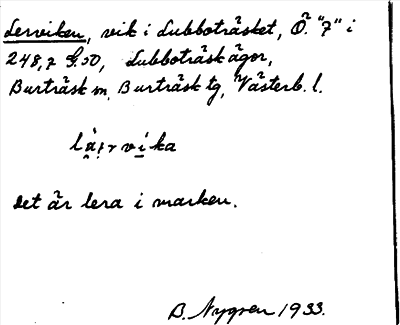 Lerviken, vik i Lubboträsket, Ö. "7" i
248,7 S.O, Lubboträsk ägor,
Burträsk m, Burträsk tg, Västerb. l.
lä̀rvìka
Det är lera i marken.
B. Nygren 1933.